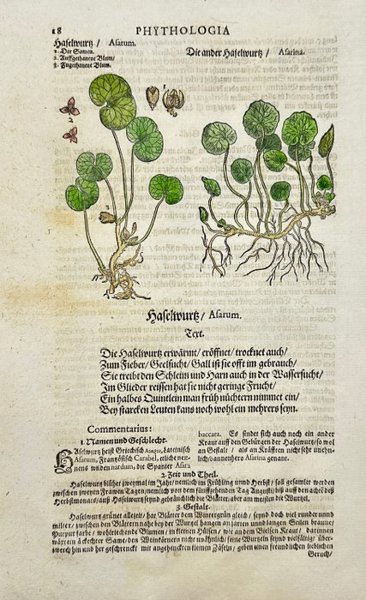 18 PHYTHOLOGIA
Haselwurtz / Asarum.
1. Der Samen.
2. Auffgethanene Blum /
3. Zugethanene Blum.
Die ander Haselwurtz / Asarina.
Haselwurtz / Asarum.
Text.
Die Haselwurtz erwärmt / eröffnet / trocknet auch /
Zum Fieber / Geelsucht / Gall ist sie offt im gebrauch /
Sie treibt den Schleim und Harn auch in der Wassersucht /
Im Glieder reissen hat sie nicht geringe Frucht /
Ein halbes Quintlein man früh nüchtern nimmet ein /
Bey starcken Leuten kans noch wohl ein mehrers seyn.
Commentarius:
1. Namen und Geschlecht.
Haselwurtz heist Griechisch Lateinisch
Asarum, Frantzösisch Cabaret, etliche nen-
nens wilden nardum, die Spanier Asara
baccara. Es findet sich auch noch ein ander
Kraut auff den Gebürgen der Haselwurtz so wol
an Gestalt / als an Kräfften nicht sehr unehn-
lich / von annehero Asarina genant.
2. Zeit und Theil.
Haselwurtz blühet zweymal im Jahr / nemlich im Frühling und Herbst / soll gesamlet werden
zwischen zweyen Frawen Tagen / nemlich von dem fünffzehenden Tag Augusti / biß auff den achten deß
Herbstmonats / auß Haselwurtz seynd gebräuchlich die Blätter / aber am meisten die Wurtzel.
3. Gestalt.
Haselwurtz grünet allezeit / hat Blätter dem Wintergrün gleich / seynd doch viel runder unnd
milter / zwischen den Blättern nahe bey der Wurtzel hangen an zarten unnd langen Stielen braune /
Purpur farbe / wohlriechende Blumen / in kleinen Hülsen / wie an dem Bielsen Kraut / darinnen
wäxset eckechter Same / den Weinkörnern nicht unähnlich / seine Wurtzeln seynd vielfältig über-
zwerch hin und her geschrenckt mit angehenckten kleinen Zäseln / geben einen freundlichen lieblichen
Geruch /